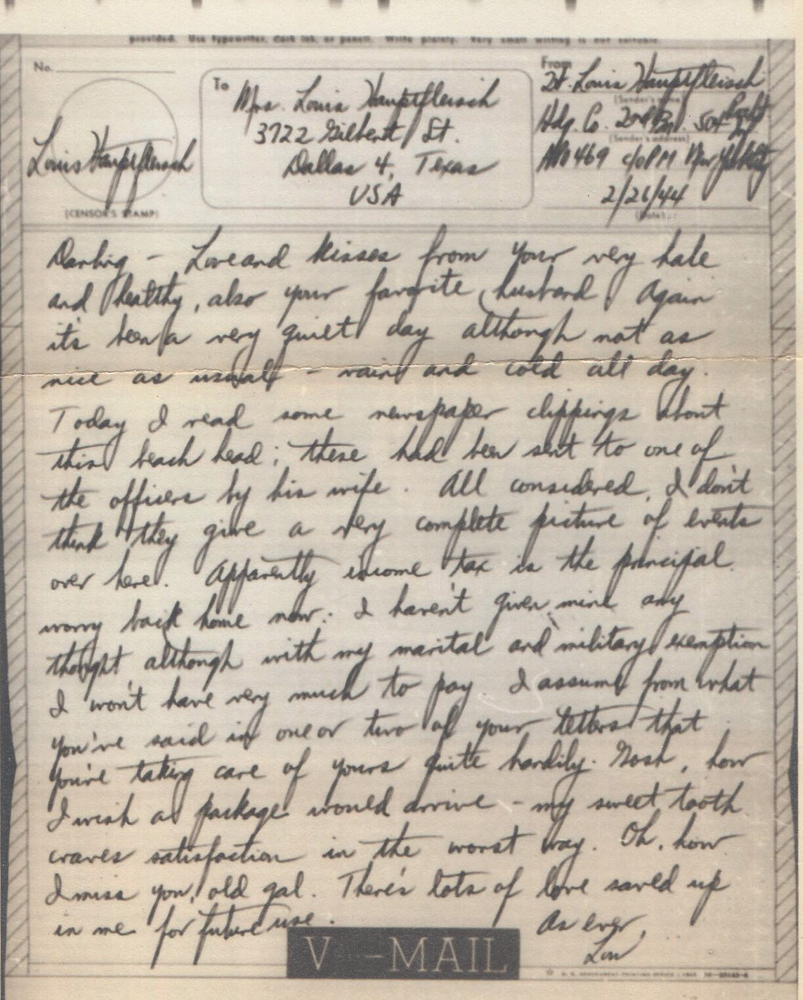 provided. Use typewriter, dark ink, or pencil. Write plainly. Very small writing is not suitable.
No.
To
From
Mrs. Louis Hauptfleisch
3722 Gilbert St.
Dallas 4, Texas
USA
Lt. Louis Hauptfleisch
(Sender's name)
Hdq. Co. 2nd Bn. 504
(Sender's address)
APO 469 c/o PM New York City
2/26/44
(Date)
Louis Hauptfleisch
(CENSOR'S STAMP)
Darling - Love and kisses from your very hale
and healthy, also your favorite, husband. Again
it's been a very quiet day although not as
nice as usual - rain and cold all day.
Today I read some newspaper clippings about
this beach head; these had been sent to one of
the officers by his wife. All considered, I don't
think they give a very complete picture of events
over here. Apparently income tax is the principal
worry back home now. I haven't given mine any
thought although with my marital and military exemption
I won't have very much to pay. I assume from what
you've said in one or two of your letters that
you're taking care of yours quite handily. Gosh, how
I wish a package would arrive - my sweet tooth
craves satisfaction in the worst way. Oh, how
I miss you, old gal. There's lots of love saved up
in me for future use.
As ever,
Lou
V - MAIL